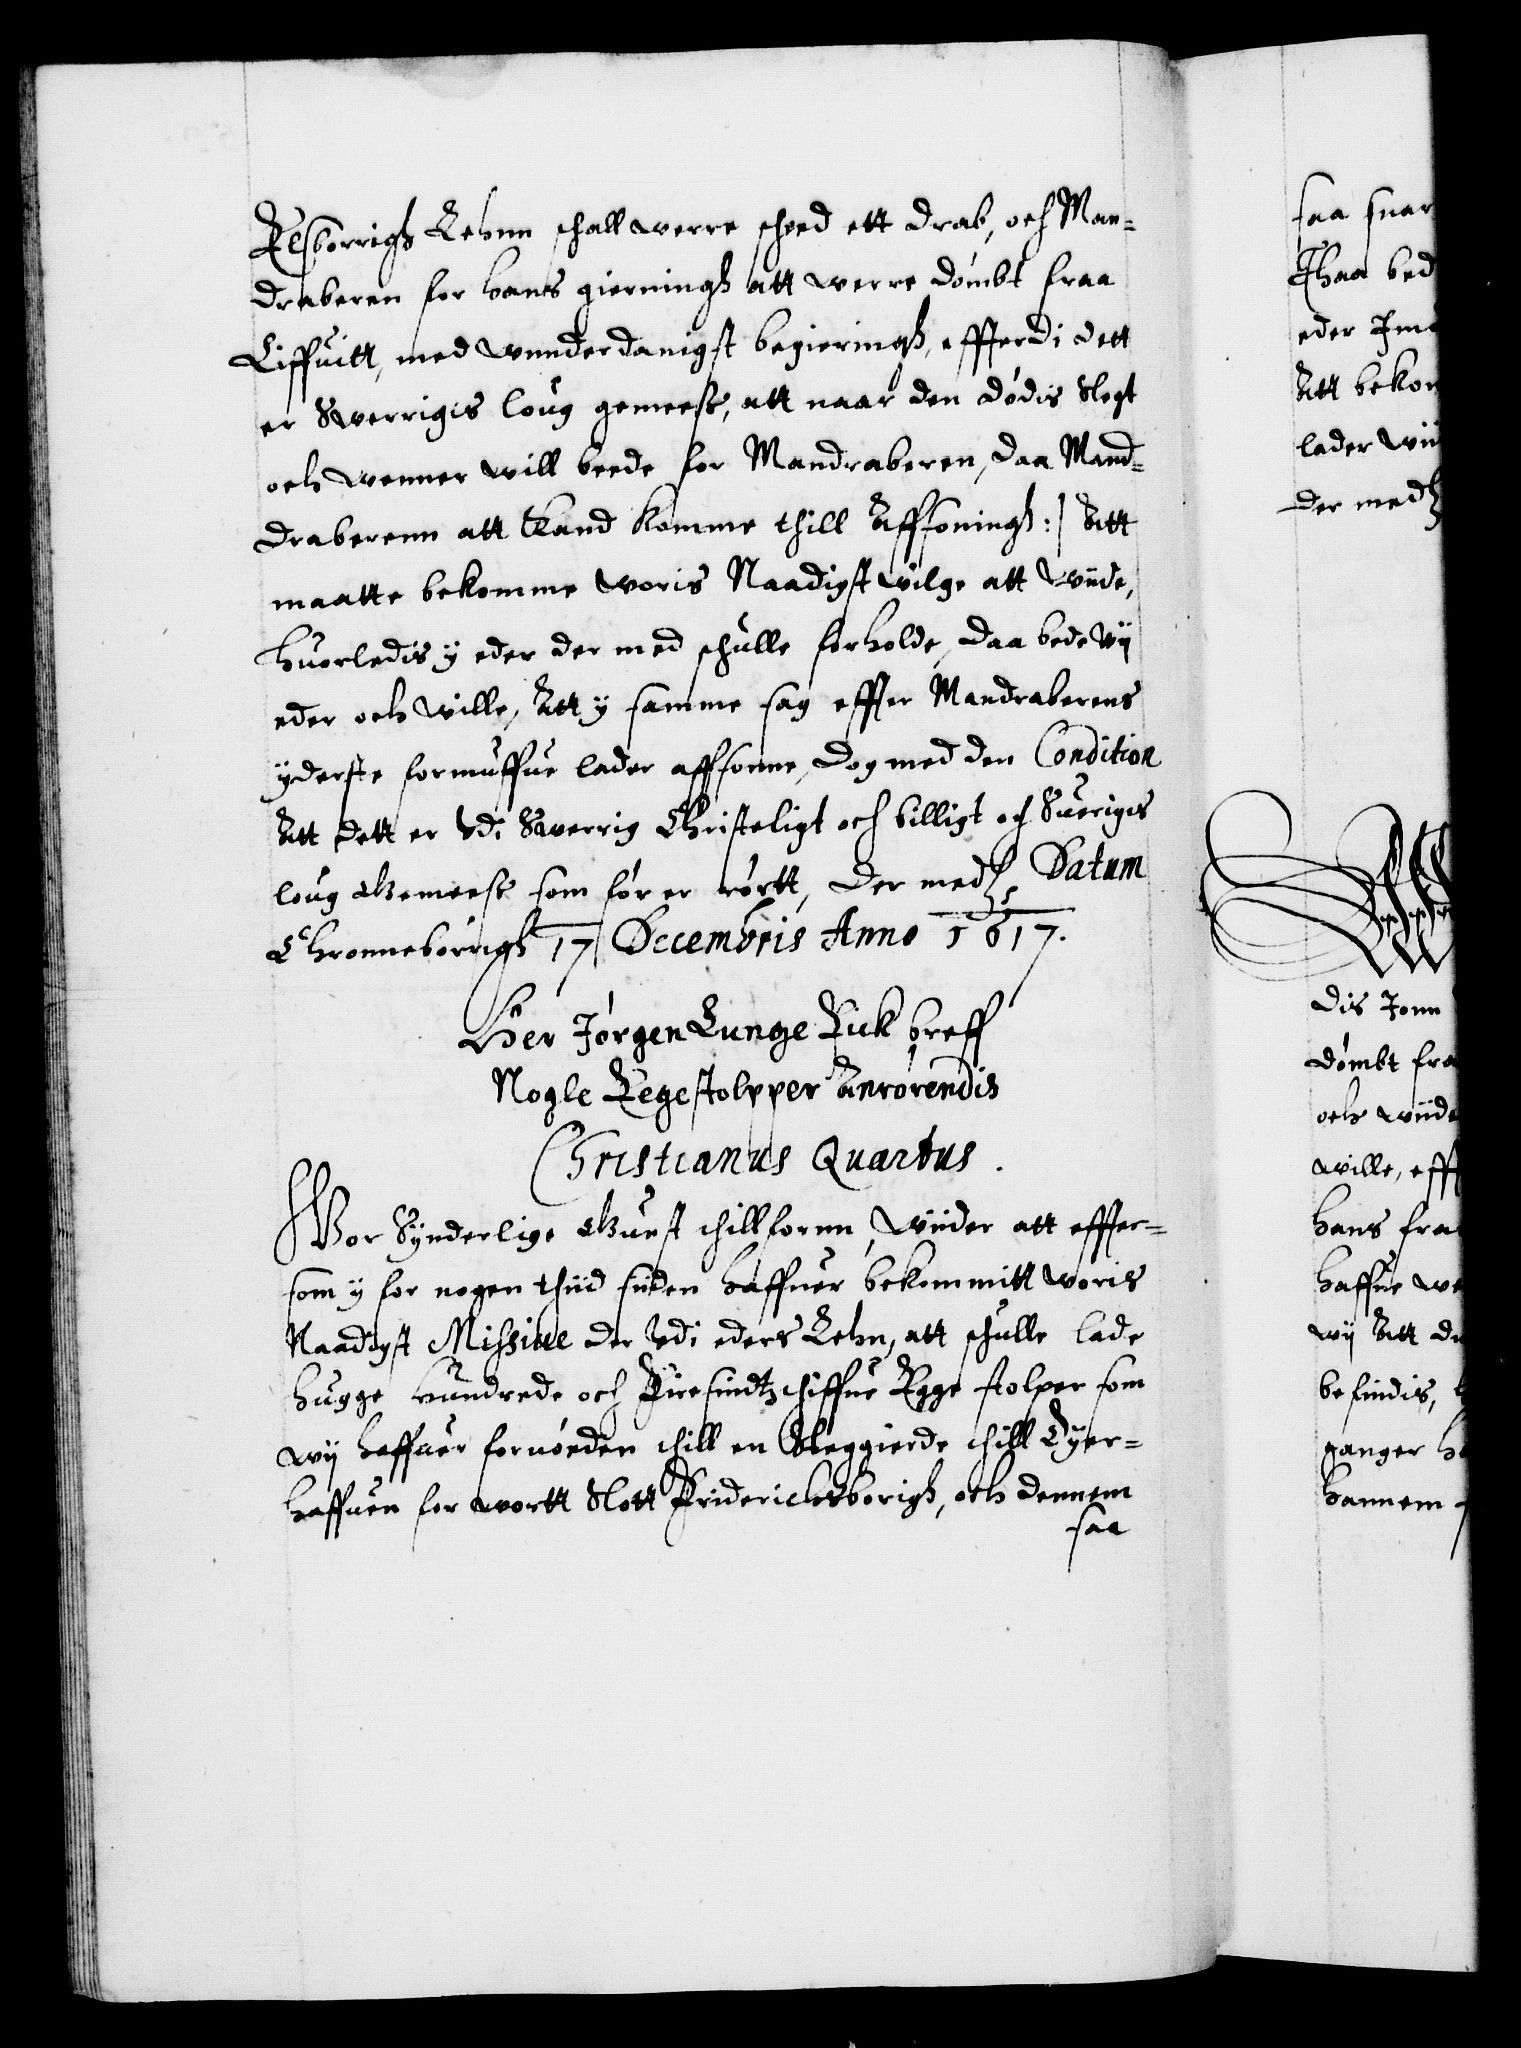 Elsborrigh Lehnn schall verre scheed ett drab, och Man-
draberen for hans gierningh att werre dømbt fraa
Liffuitt, med wnnderdanigst begieringh, effterdi dett
er Swerrigis loug gemeess, att naar den dødis Slegt
och wenner will beede for Mandraberen, daa Mand-
draberenn att kand komme thill Affsoningh :| Att
maatte bekomme woris Naadigst wilge att wiide,
huorledis y eder der med schulle forholde, daa bede wij
eder och wille, Att y samme sag effter Mandraberens
yderste formuffue lader affsonne, dog med den Condition
Att dett er vdi Swerrig Christeligt och billigt och Sueriges
loug Gemeess som før er rørtt, der medt Datum
Chronneborrigh 17 Decembris Anno 1617.
Her Jørgen Lunge Fick breff
Nogle Eegestolpper Anrørendis
Christianus Quartus.
Wor Synderlige Gunst thillfornn, wiider att effter-
som y for nogen thiid siiden haffuer bekommitt woris
Naadigst Missiue der vdi eders Lehn, att schulle lade
hugge hundrede och Fiiresindtzthiffue Egge stolper som
wij haffuer fornøeden thill en Veggierde thill Dyer-
haffuen for wortt Slott Friderichsborigh, och dennem
saa
saa snar
Thaa bed
eder Im
Att bekom
lader wii
der medt
dis Jonn
dømbt fra
och wiide
wille, efft
hans fra
haffue we
wij Att d
befindis,
ganger h
hannem